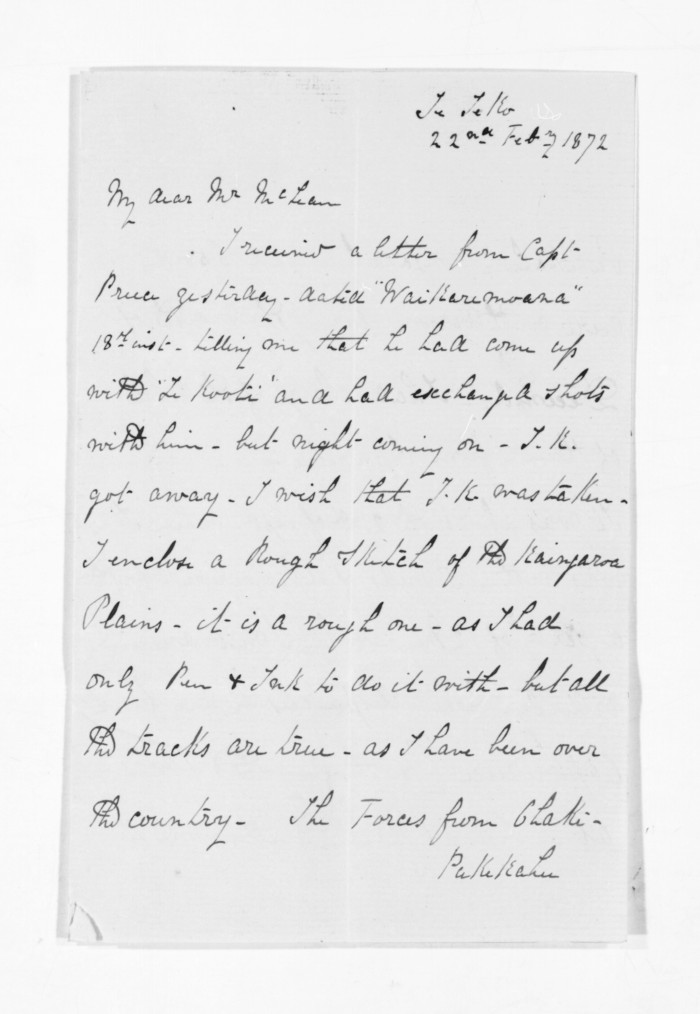 Te Teko
22nd Feby 1872
My dear Mr McLean
I received a letter from Capt
Preece yesterday - dated "Waikaremoana"
18th inst - telling me that he had come up
with 'Te Kooti' and had exchanged shots
with him - but night coming on - T.K.
got away - I wish that T.K. was taken -
I enclose a Rough Sketch of the Kaingaroa
Plains - it is a rough one - as I had
only Pen & Ink to do it with - but all
the tracks are true - as I have been over
the country - The Forces from Ohaki -
Pukekahu